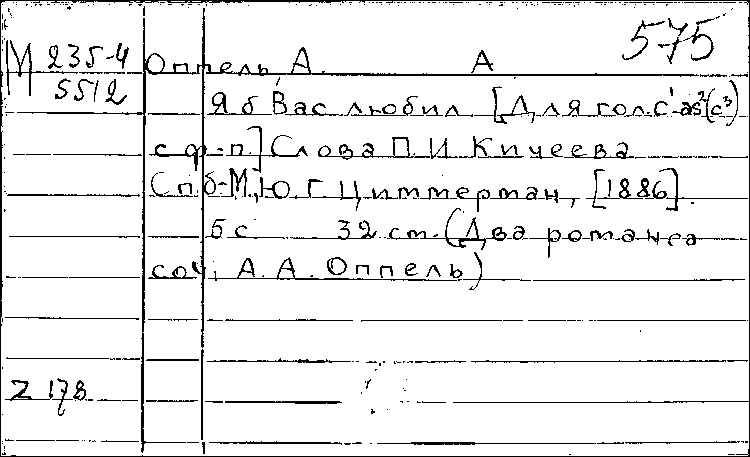 575
М 235-4
5512
Оппель, А. А
Я б Вас любил [Для гол. с¹-as²(c³)
с ф-п] Слова П. И Кичеева
Спб-М., Ю. Г. Циммерман, [1886].
5 с 32 ст. (Два романса
соч. А. А. Оппель)
Z 178